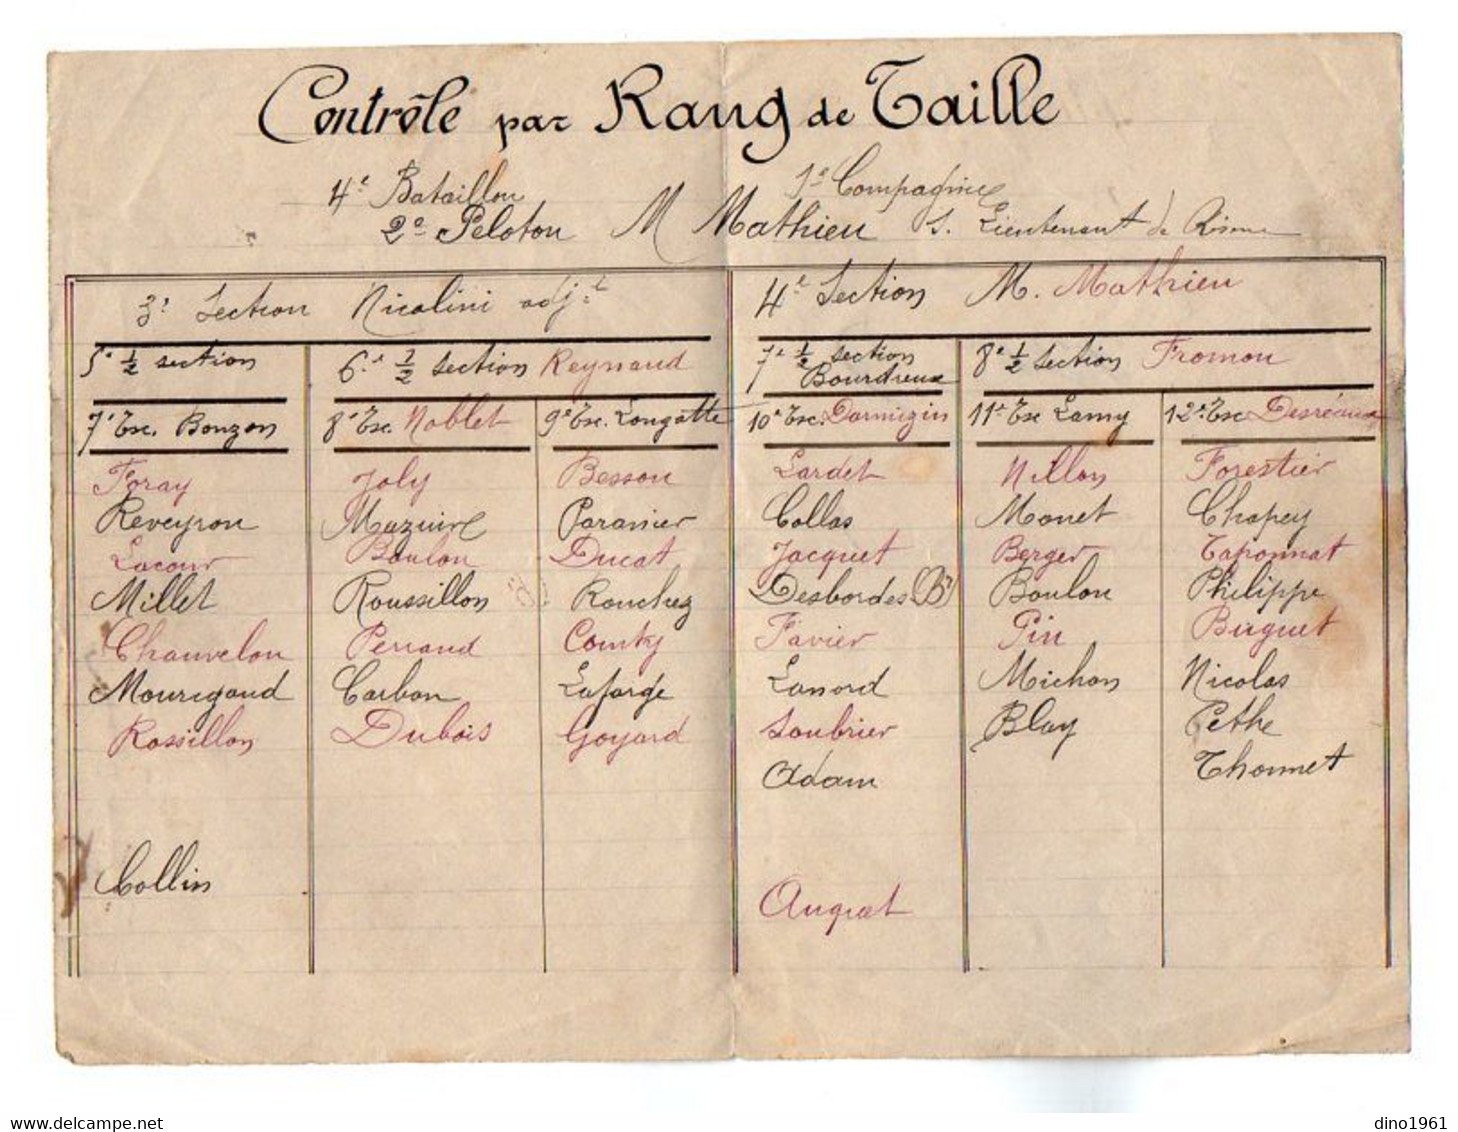 Contrôle par Rang de Taille
4e Bataillon 1e Compagnie
2e Peloton M Mathieu S. Lieutenant de
3e Section Nicolini adjt
4e Section M. Mathieu
5e 1/2 section
6e 1/2 section Reynaud
7e 1/2 section Bourdreux
8e 1/2 section Fromon
7e Esc. Bonzon
8e Esc. Noblet
9e Esc. Longatte
10e Esc. Darmizin
11e Esc Lamy
12e Esc Desréaux
Foray Joly Besson Lardet Nillon Forestier
Reveyron Mazuire Paranier Collas Monet Chapey
Lacour Boulon Ducat Jacquet Berger Taponnat
Millet Roussillon Ronchez Desbordes (Bt) Boulon Philippe
Chauvelon Perraud Comty Favier Pin Buguet
Mourigaud Carbon Lafarge Lanord Michon Nicolas
Rossillon Dubois Goyard Soubrier Blay Pethe
Adam Thonnet
Collin
Augrat
dino1961